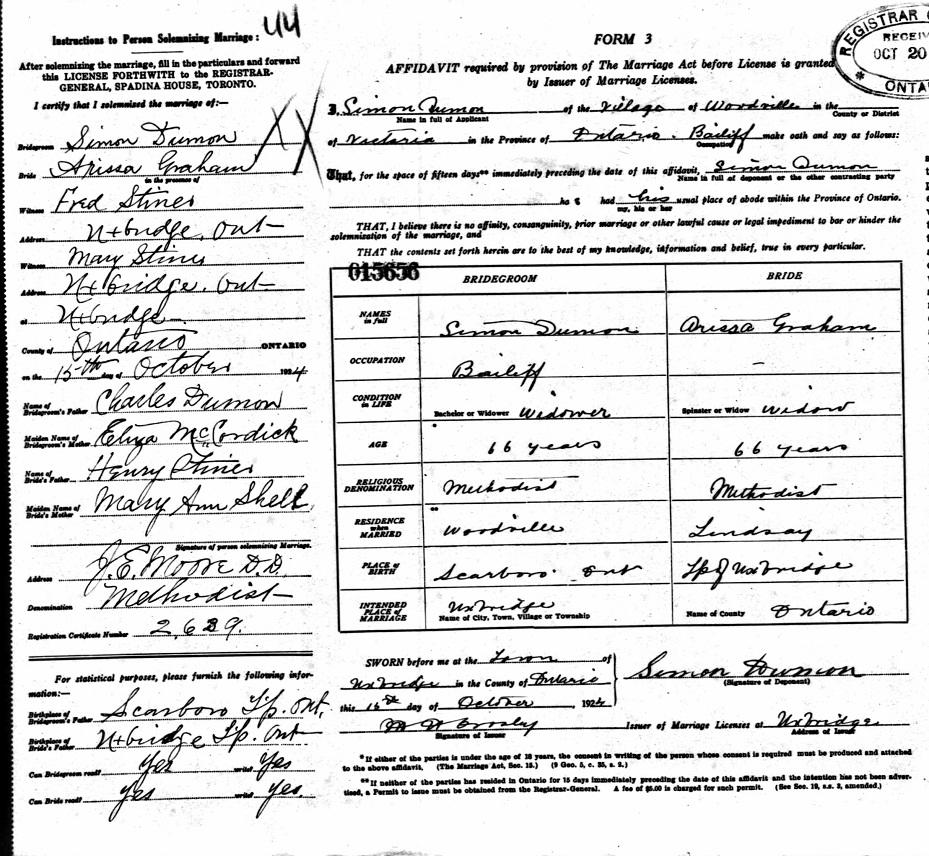 44
Instructions to Person Solemnizing Marriage:
After solemnizing the marriage, fill in the particulars and forward
this LICENSE FORTHWITH to the REGISTRAR-
GENERAL, SPADINA HOUSE, TORONTO.
I certify that I solemnized the marriage of:—
Bridegroom Simon Dumon
Bride Arissa Graham
in the presence of
Witness Fred Stiner
Address Uxbridge, Ont
Witness Mary Stiner
Address Uxbridge. Ont
at Uxbridge
County of Ontario ONTARIO
on the 15th day of October 1924
Name of Bridegroom's Father Charles Dumon
Maiden Name of Bridegroom's Mother Eliza McCordick
Name of Bride's Father Henry Stiner
Maiden Name of Bride's Mother Mary Ann Shell
Signature of person solemnizing Marriage.
J. E. Moore D.D.
Address
Denomination Methodist
Registration Certificate Number 2,639.
For statistical purposes, please furnish the following infor-
mation:—
Birthplace of Bridegroom's Father Scarboro Tp. Ont.
Birthplace of Bride's Father Uxbridge Tp. Ont
Can Bridegroom read? Yes write? Yes
Can Bride read? Yes write? Yes.
REGISTRAR
RECEIV
OCT 20
ONTA
FORM 3
AFFIDAVIT required by provision of The Marriage Act before License is granted
by Issuer of Marriage Licenses.
I, Simon Dumon of the Village of Woodville in the
Name in full of Applicant County or District
of Victoria in the Province of Ontario. Bailiff make oath and say as follows:
Occupation
That, for the space of fifteen days** immediately preceding the date of this affidavit, Simon Dumon
Name in full of deponent or the other contracting party
ha s had his usual place of abode within the Province of Ontario.
my, his or her
THAT, I believe there is no affinity, consanguinity, prior marriage or other lawful cause or legal impediment to bar or hinder the
solemnization of the marriage, and
THAT the contents set forth herein are to the best of my knowledge, information and belief, true in every particular.
015656 BRIDEGROOM BRIDE
NAMES in full Simon Dumon Arissa Graham
OCCUPATION Bailiff —
CONDITION in LIFE Bachelor or Widower Widower Spinster or Widow Widow
AGE * 66 years 66 years
RELIGIOUS DENOMINATION Methodist Methodist
RESIDENCE when MARRIED ** Woodville Lindsay
PLACE of BIRTH Scarboro Ont Tp of Uxbridge
INTENDED PLACE of MARRIAGE Uxbridge Name of County Ontario
Name of City, Town, Village or Township
SWORN before me at the Town of
Uxbridge in the County of Ontario
this 15th day of October, 1924
Simon Dumon
(Signature of Deponent)
Crosby Issuer of Marriage Licenses at Uxbridge
Signature of Issuer Address of Issuer
* If either of the parties is under the age of 18 years, the consent in writing of the person whose consent is required must be produced and attached
to the above affidavit. (The Marriage Act, Sec. 15.) (9 Geo. 5, c. 35, s. 2.)
** If neither of the parties has resided in Ontario for 15 days immediately preceding the date of this affidavit and the intention has not been adver-
tised, a Permit to issue must be obtained from the Registrar-General. A fee of $5.00 is charged for such permit. (See Sec. 19, s.s. 3, amended.)